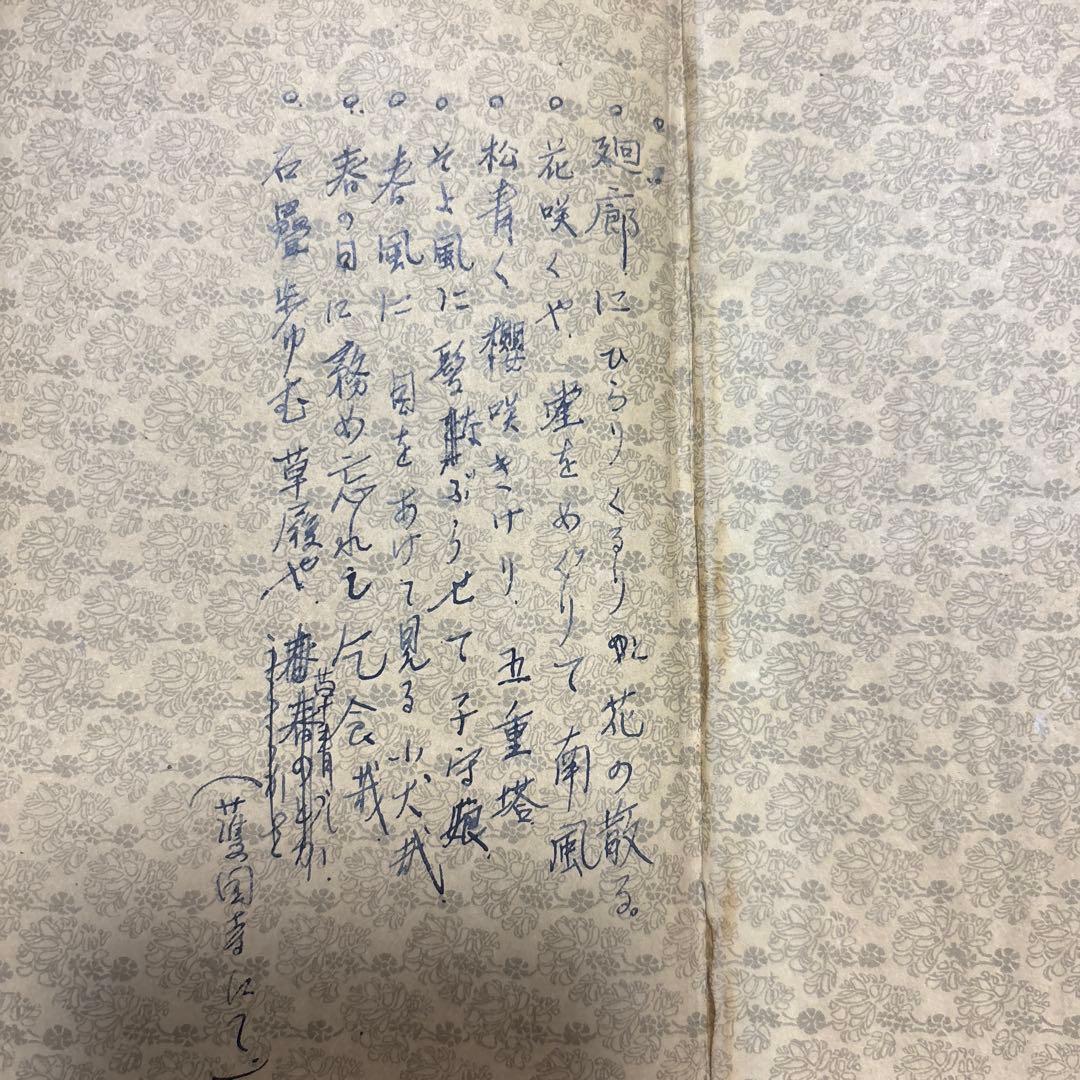 廻廊にひらりくるり花の散る。
花咲くや 堂をめぐりて南風
松青く櫻咲きけり 五重塔
そよ風に髪なぶらせて子守娘
春風に目をあけて見る小犬哉
春の日に務め忘れし乞食哉
石疊歩ゆむ草履や
(護国寺にて)